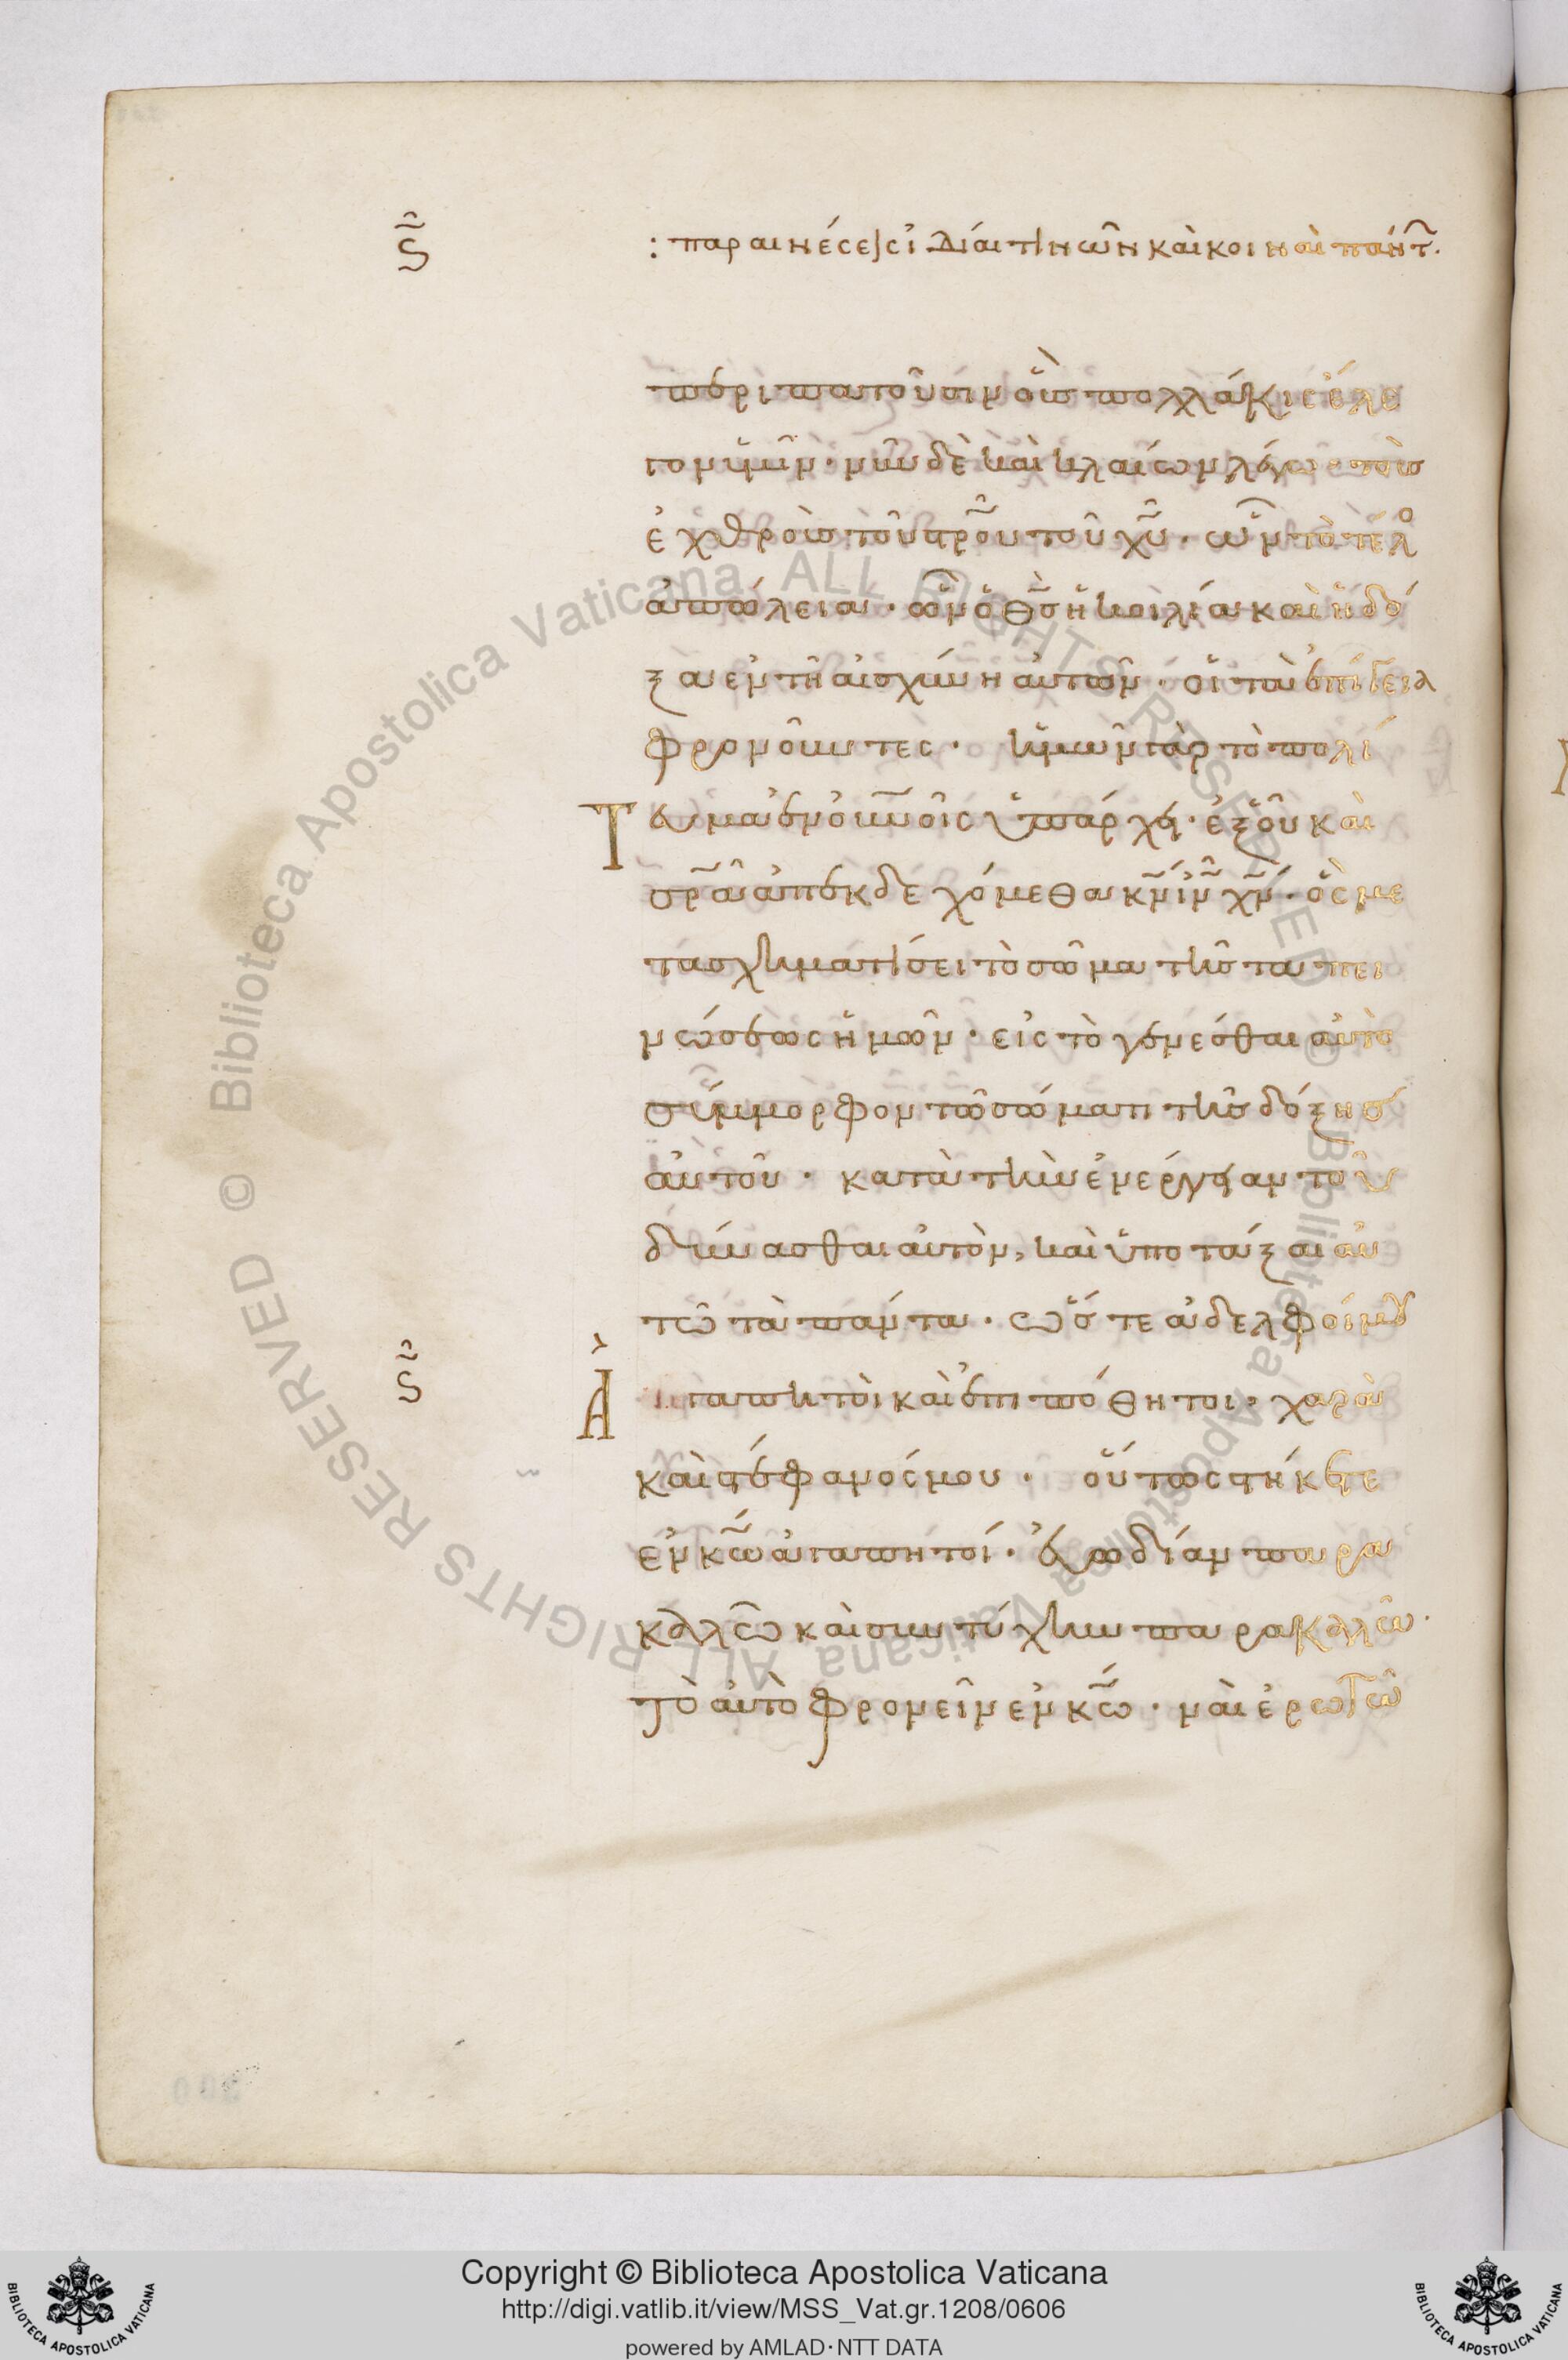 ς
: παραινέσεις ἰδίαι τινῶν καὶ κοιναὶ πάντ.
περιπατοῦσιν οὓς πολλάκις ἔλε
γον ὑμῖν· νῦν δὲ καὶ κλαίων λέγω· τοὺς
ἐχθροὺς τοῦ σρ̅ου τοῦ χυ̅· ὧν τὸ τέλο
ἀπώλεια· ὧν ὁ θς̅ ἡ κοιλία καὶ ἡ δό
ξα ἐν τῆ αἰσχύνη αὐτῶν· οἱ τὰ ἐπίγεια
φρονοῦντες· ἡμῶν γὰρ τὸ πολί
Τ ευμα ἐν οὐνοῖς ὑπάρχει· ἐξ οὗ καὶ
σρ̅α ἀπεκδεχόμεθα κν̅ ιν̅ χν̅· ὃς με
τασχηματίσει τὸ σῶμα τῆς ταπει
νώσεως ἡμῶν· εἰς τὸ γενέσθαι αὐτὸ
σύμμορφον τῶ σώματι τῆς δόξης
αὐτοῦ· κατὰ τὴν ἐνέργειαν τοῦ
δύνασθαι αὐτὸν, καὶ ὑποτάξαι αὐ
τῶ τὰ πάντα· ὥστε ἀδελφοί μου
ς
Ἀ γαπητοὶ καὶ ἐπιπόθητοι· χαρὰ
καὶ στέφανός μου· οὕτως στήκετε
ἐν κω̅ ἀγαπητοί· ἐυωδίαν παρα
καλῶ καὶ συντύχην παρακαλῶ·
τὸ αὐτὸ φρονεῖν ἐν κω̅· ναὶ ἐρωτῶ
© Biblioteca Apostolica Vaticana ALL RIGHTS RESERVED © Biblioteca Apostolica Vaticana ALL RIGHTS RESERVED
Copyright © Biblioteca Apostolica Vaticana
http://digi.vatlib.it/view/MSS_Vat.gr.1208/0606
powered by AMLAD·NTT DATA
BIBLIOTECA APOSTOLICA VATICANA
BIBLIOTECA APOSTOLICA VATICANA